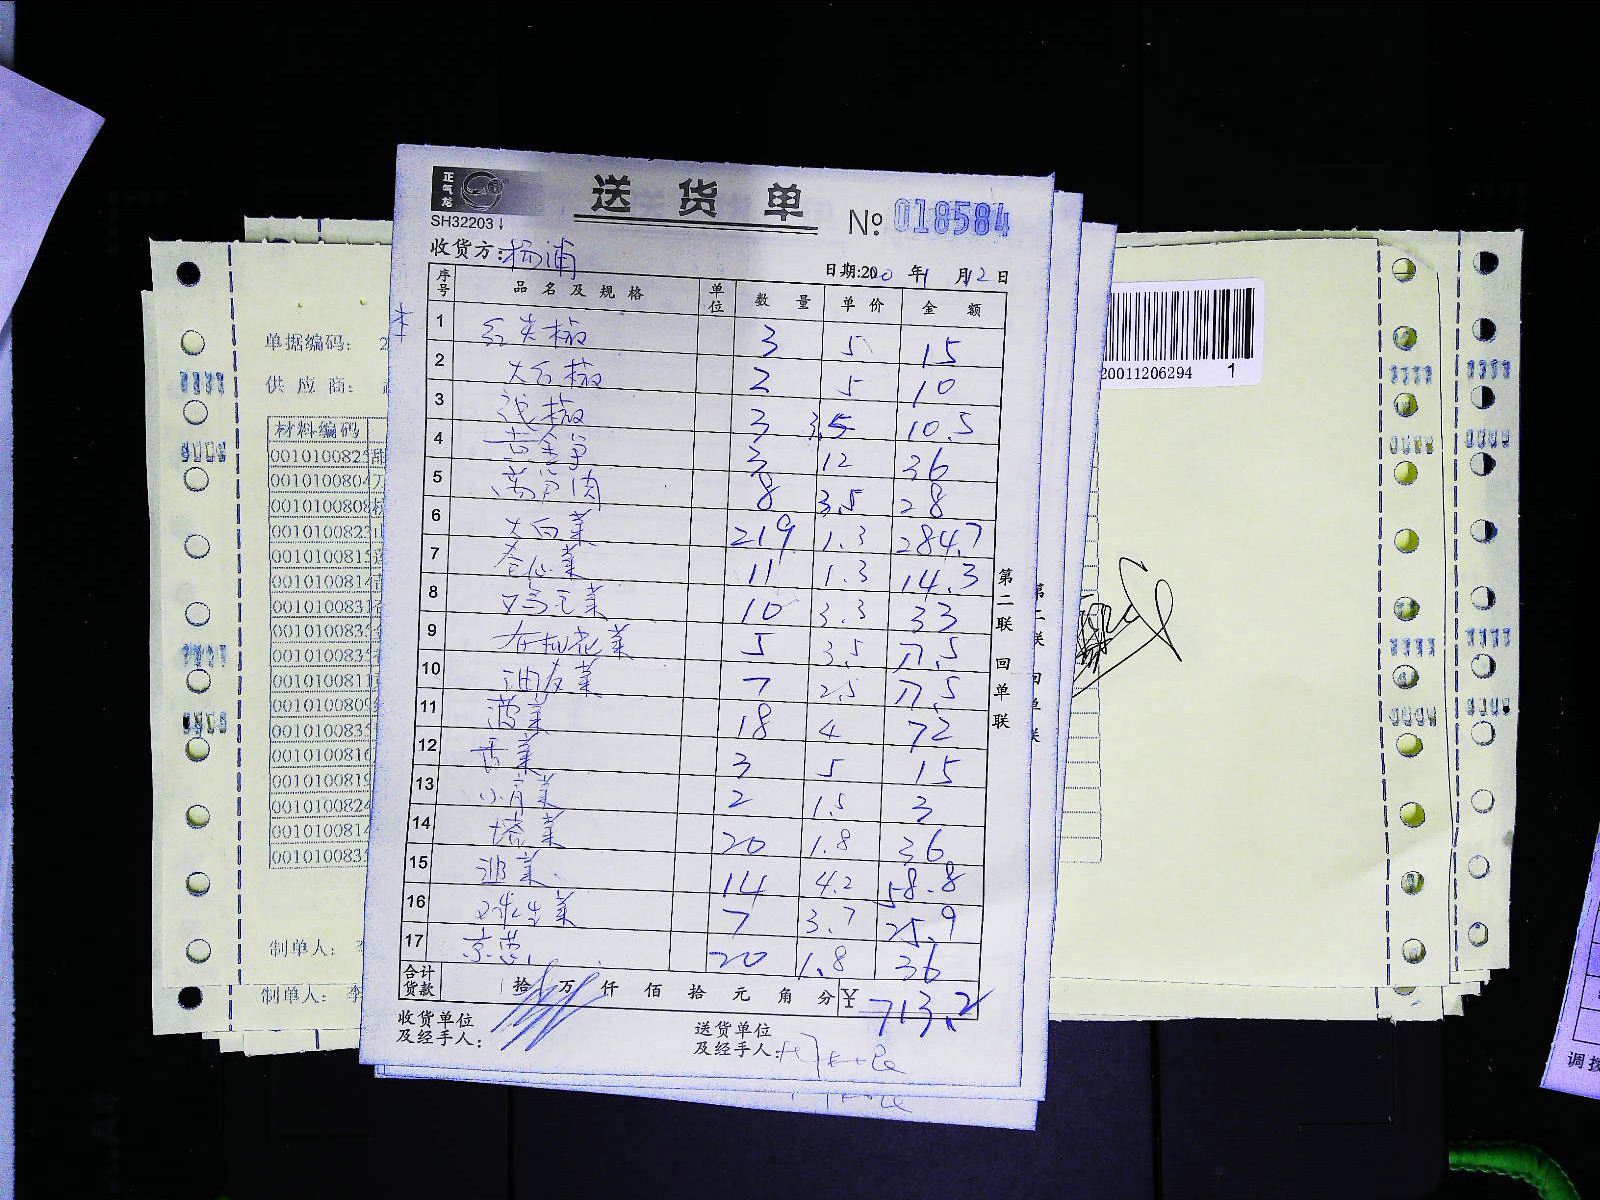 正气龙
送货单
SH32203
№ 018584
收货方:杨浦
日期:2020年1月12日
序号 品名及规格 单位 数量 单价 金额
1 红尖椒 3 5 15
2 大红椒 2 5 10
3 线椒 3 3.5 10.5
4 黄金笋 3 12 36
5 莴笋肉 8 3.5 28
6 大白菜 219 1.3 284.7
7 卷心菜 11 1.3 14.3
8 鸡毛菜 10 3.3 33
9 有机花菜 5 3.5 17.5
10 油麦菜 7 2.5 17.5
11 菠菜 18 4 72
12 香菜 3 5 15
13 小青菜 2 1.5 3
14 塔菜 20 1.8 36
15 韭菜 14 4.2 58.8
16 球生菜 7 3.7 25.9
17 京葱 20 1.8 36
合计货款 拾 万 仟 佰 拾 元 角 分 ¥ 713.2
收货单位及经手人:
送货单位及经手人:
第二联 回单联
单据编码: 2
供应商:
材料编码
0010100825
0010100804
0010100808
0010100823
0010100815
0010100814
0010100831
0010100835
0010100835
0010100811
0010100809
0010100835
0010100816
0010100819
0010100824
0010100814
0010100835
制单人: 李
制单人: 李
20011206294 1
调拨